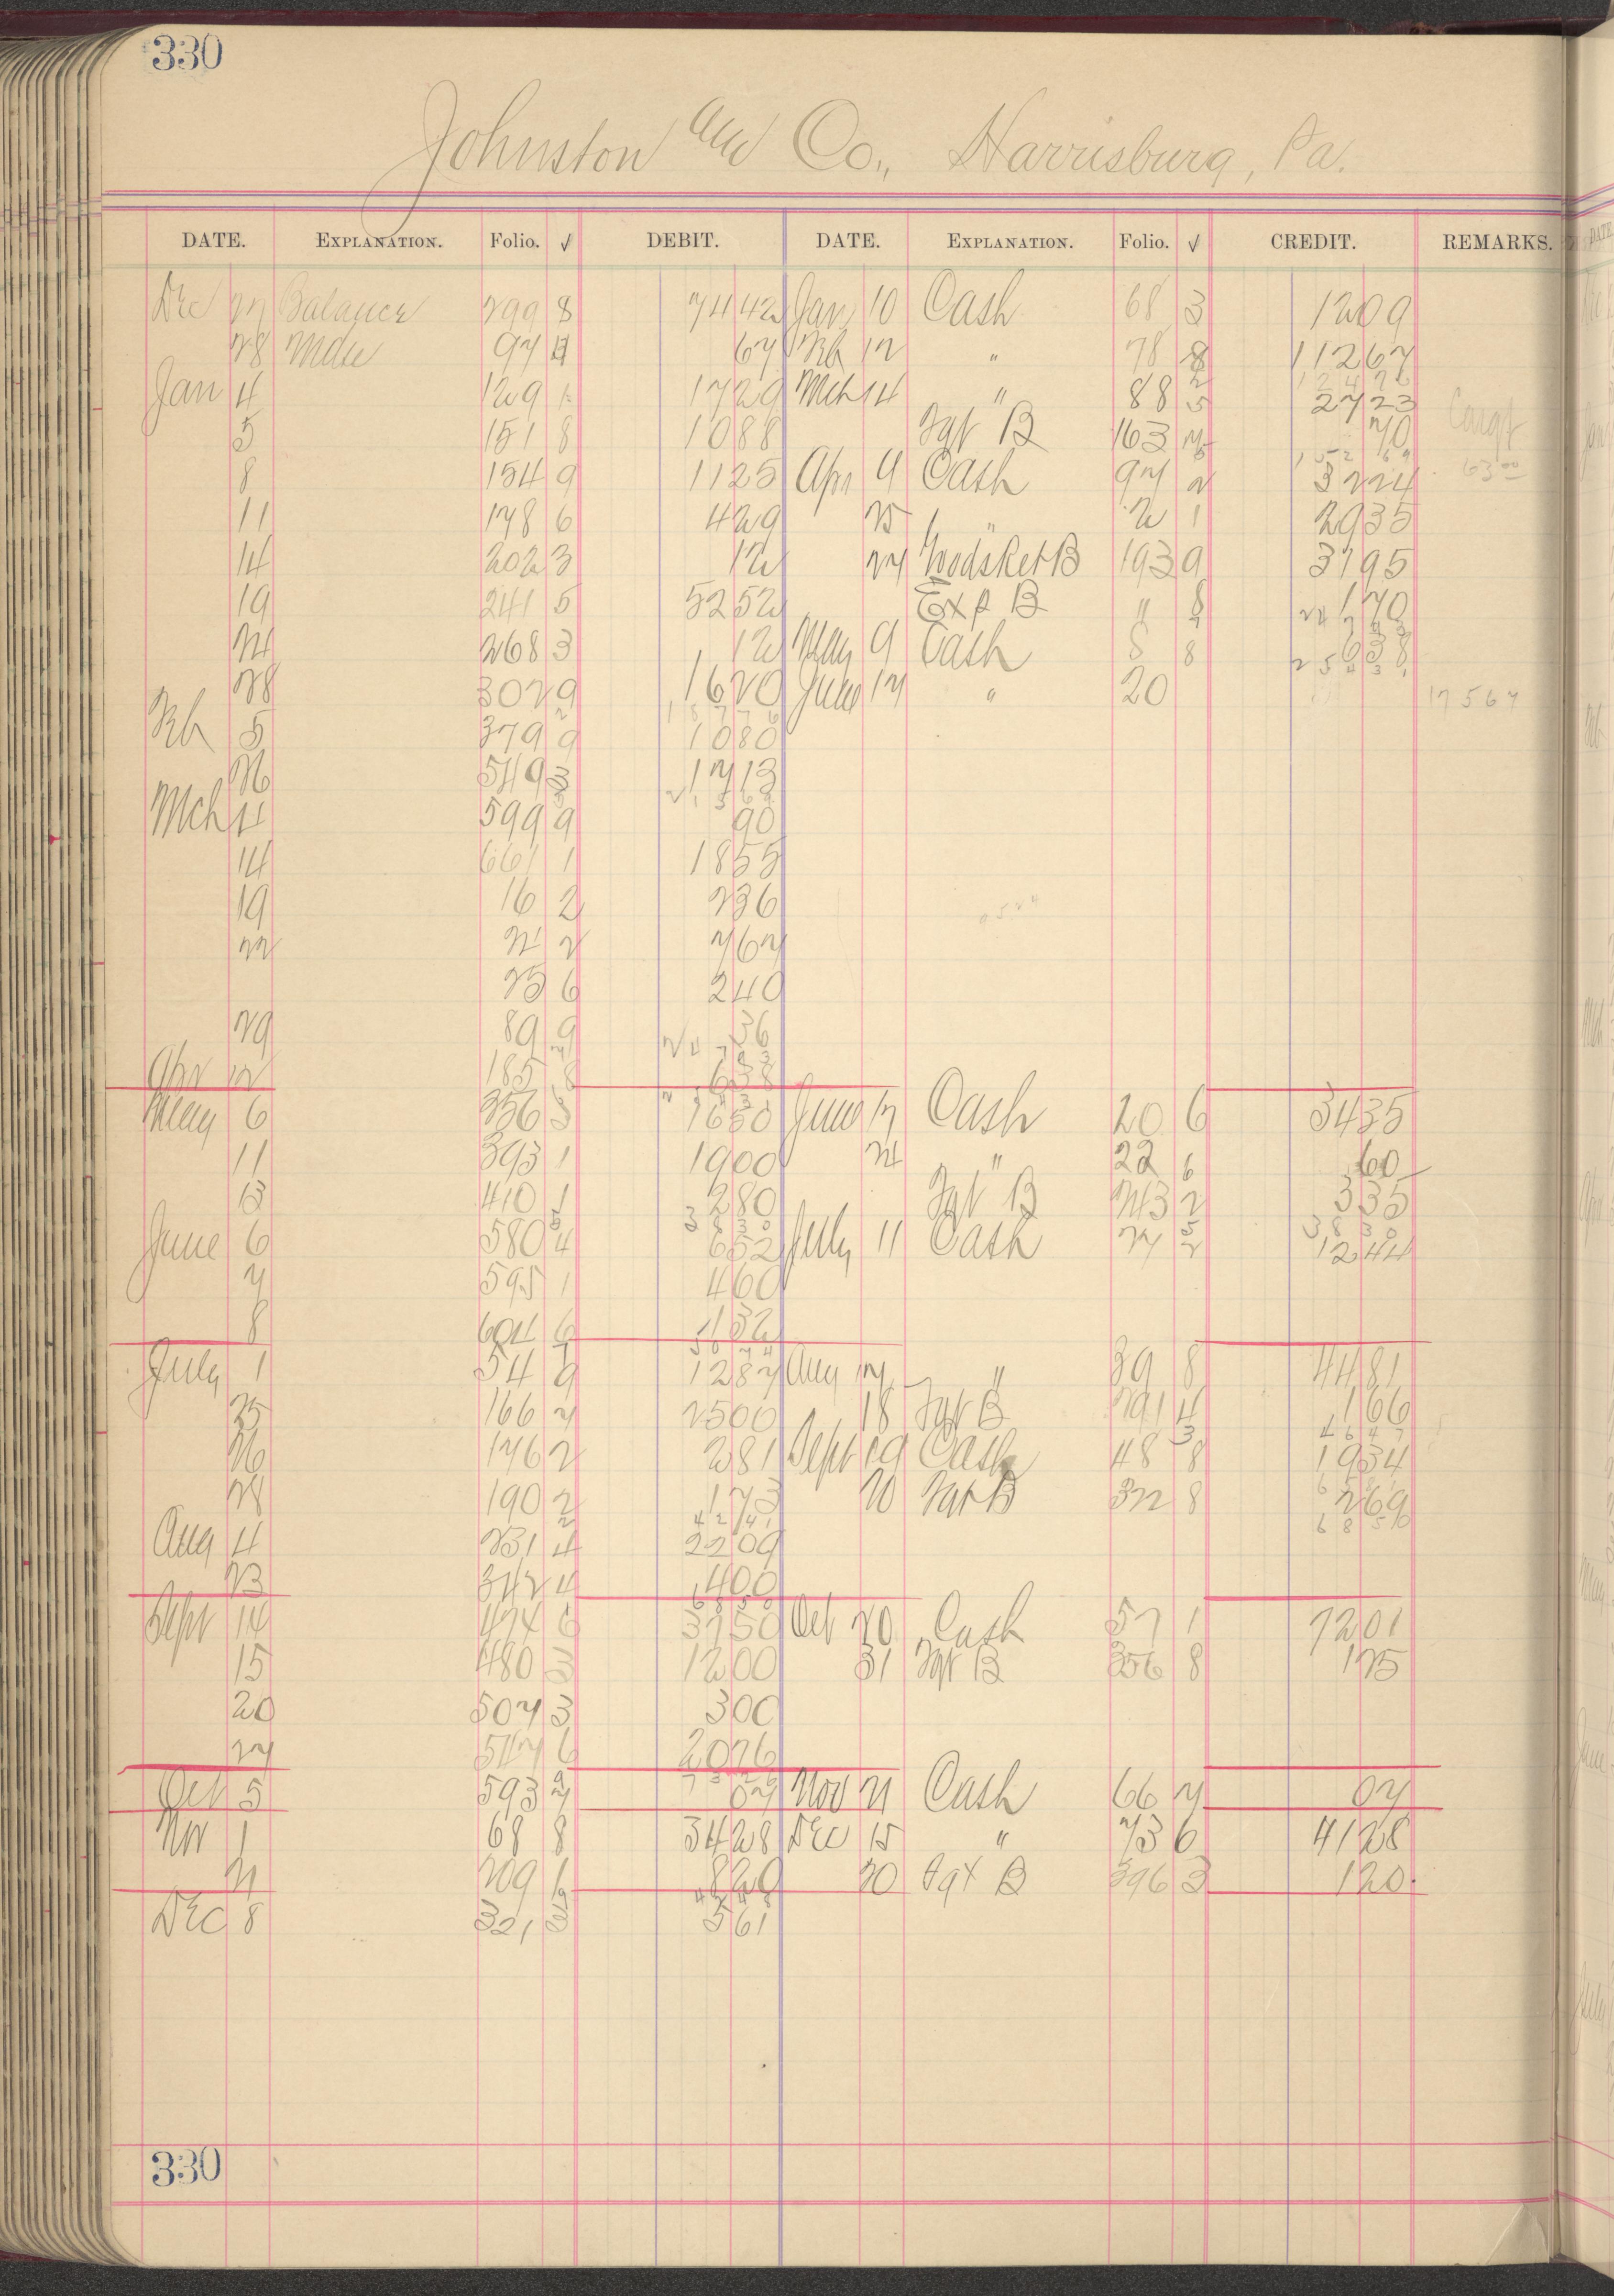 330
Johnston and Co., Harrisburg, Pa.
DATE. EXPLANATION. Folio. √ DEBIT. DATE. EXPLANATION. Folio. √ CREDIT. REMARKS.
Dec 27 Balance 299 8 7442 Jan 10 Cash 68 3 1209
28 Mdse 97 4 67 Feb 12 " 78 8 11267
Jan 4 129 1 1729 Mch 14 " 88 5 2723
5 151 8 1088 Fgt B 163 70
8 154 9 1125 Apr 9 Cash 97 2 3224
11 178 6 429 25 " 2 1 2935
14 202 3 12 27 B 193 9 3195
19 241 5 5252 Exp B " 8 170
24 268 3 12 May 9 Cash 5 8 638
28 302 9 1620 June 17 " 20 17567
Feb 5 379 9 1080
26 549 3 1713
Mch 4 599 9 90
14 661 1 1855
19 16 2 236
22 21 2 767
25 6 240
29 89 9 36
Apr 12 185 8 638
May 6 356 5 1650 June 17 Cash 20 6 3435
11 393 1 1900 24 " 22 6 60
13 410 1 280 Fgt B 243 2 335
June 6 580 4 652 July 11 Cash 27 2 1244
7 595 1 460
8 604 6 132
July 1 54 9 1287 Aug 17 " 39 8 4481
25 166 7 2500 18 Fgt B 291 4 166
26 176 2 281 Sept 19 Cash 48 8 1934
28 190 2 173 20 Fgt B 322 8 269
Aug 4 231 4 2209
23 342 4 400
Sept 14 474 6 3750 Oct 20 Cash 57 1 7201
15 480 3 1200 31 Fgt B 356 8 125
20 507 3 300
27 517 6 2076
Oct 5 593 7 07 Nov 21 Cash 66 7 07
Nov 1 68 8 3428 Dec 15 " 73 6 4128
21 209 1 820 20 Fgt B 396 3 120
Dec 8 321 3 561
330